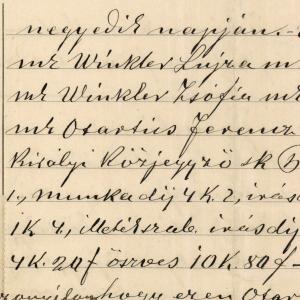 negyedik napján.-
mk Winkler Lujza m
mk Winkler Zsófia mk
mk Osartius Ferencz
Királyi Közjegyző sk
1., munkadij 4 K. 2, irás
1 K 4, illeték szab. irásdij
4 K. 20 f összves 10 K. 80 f -
hogy ezen